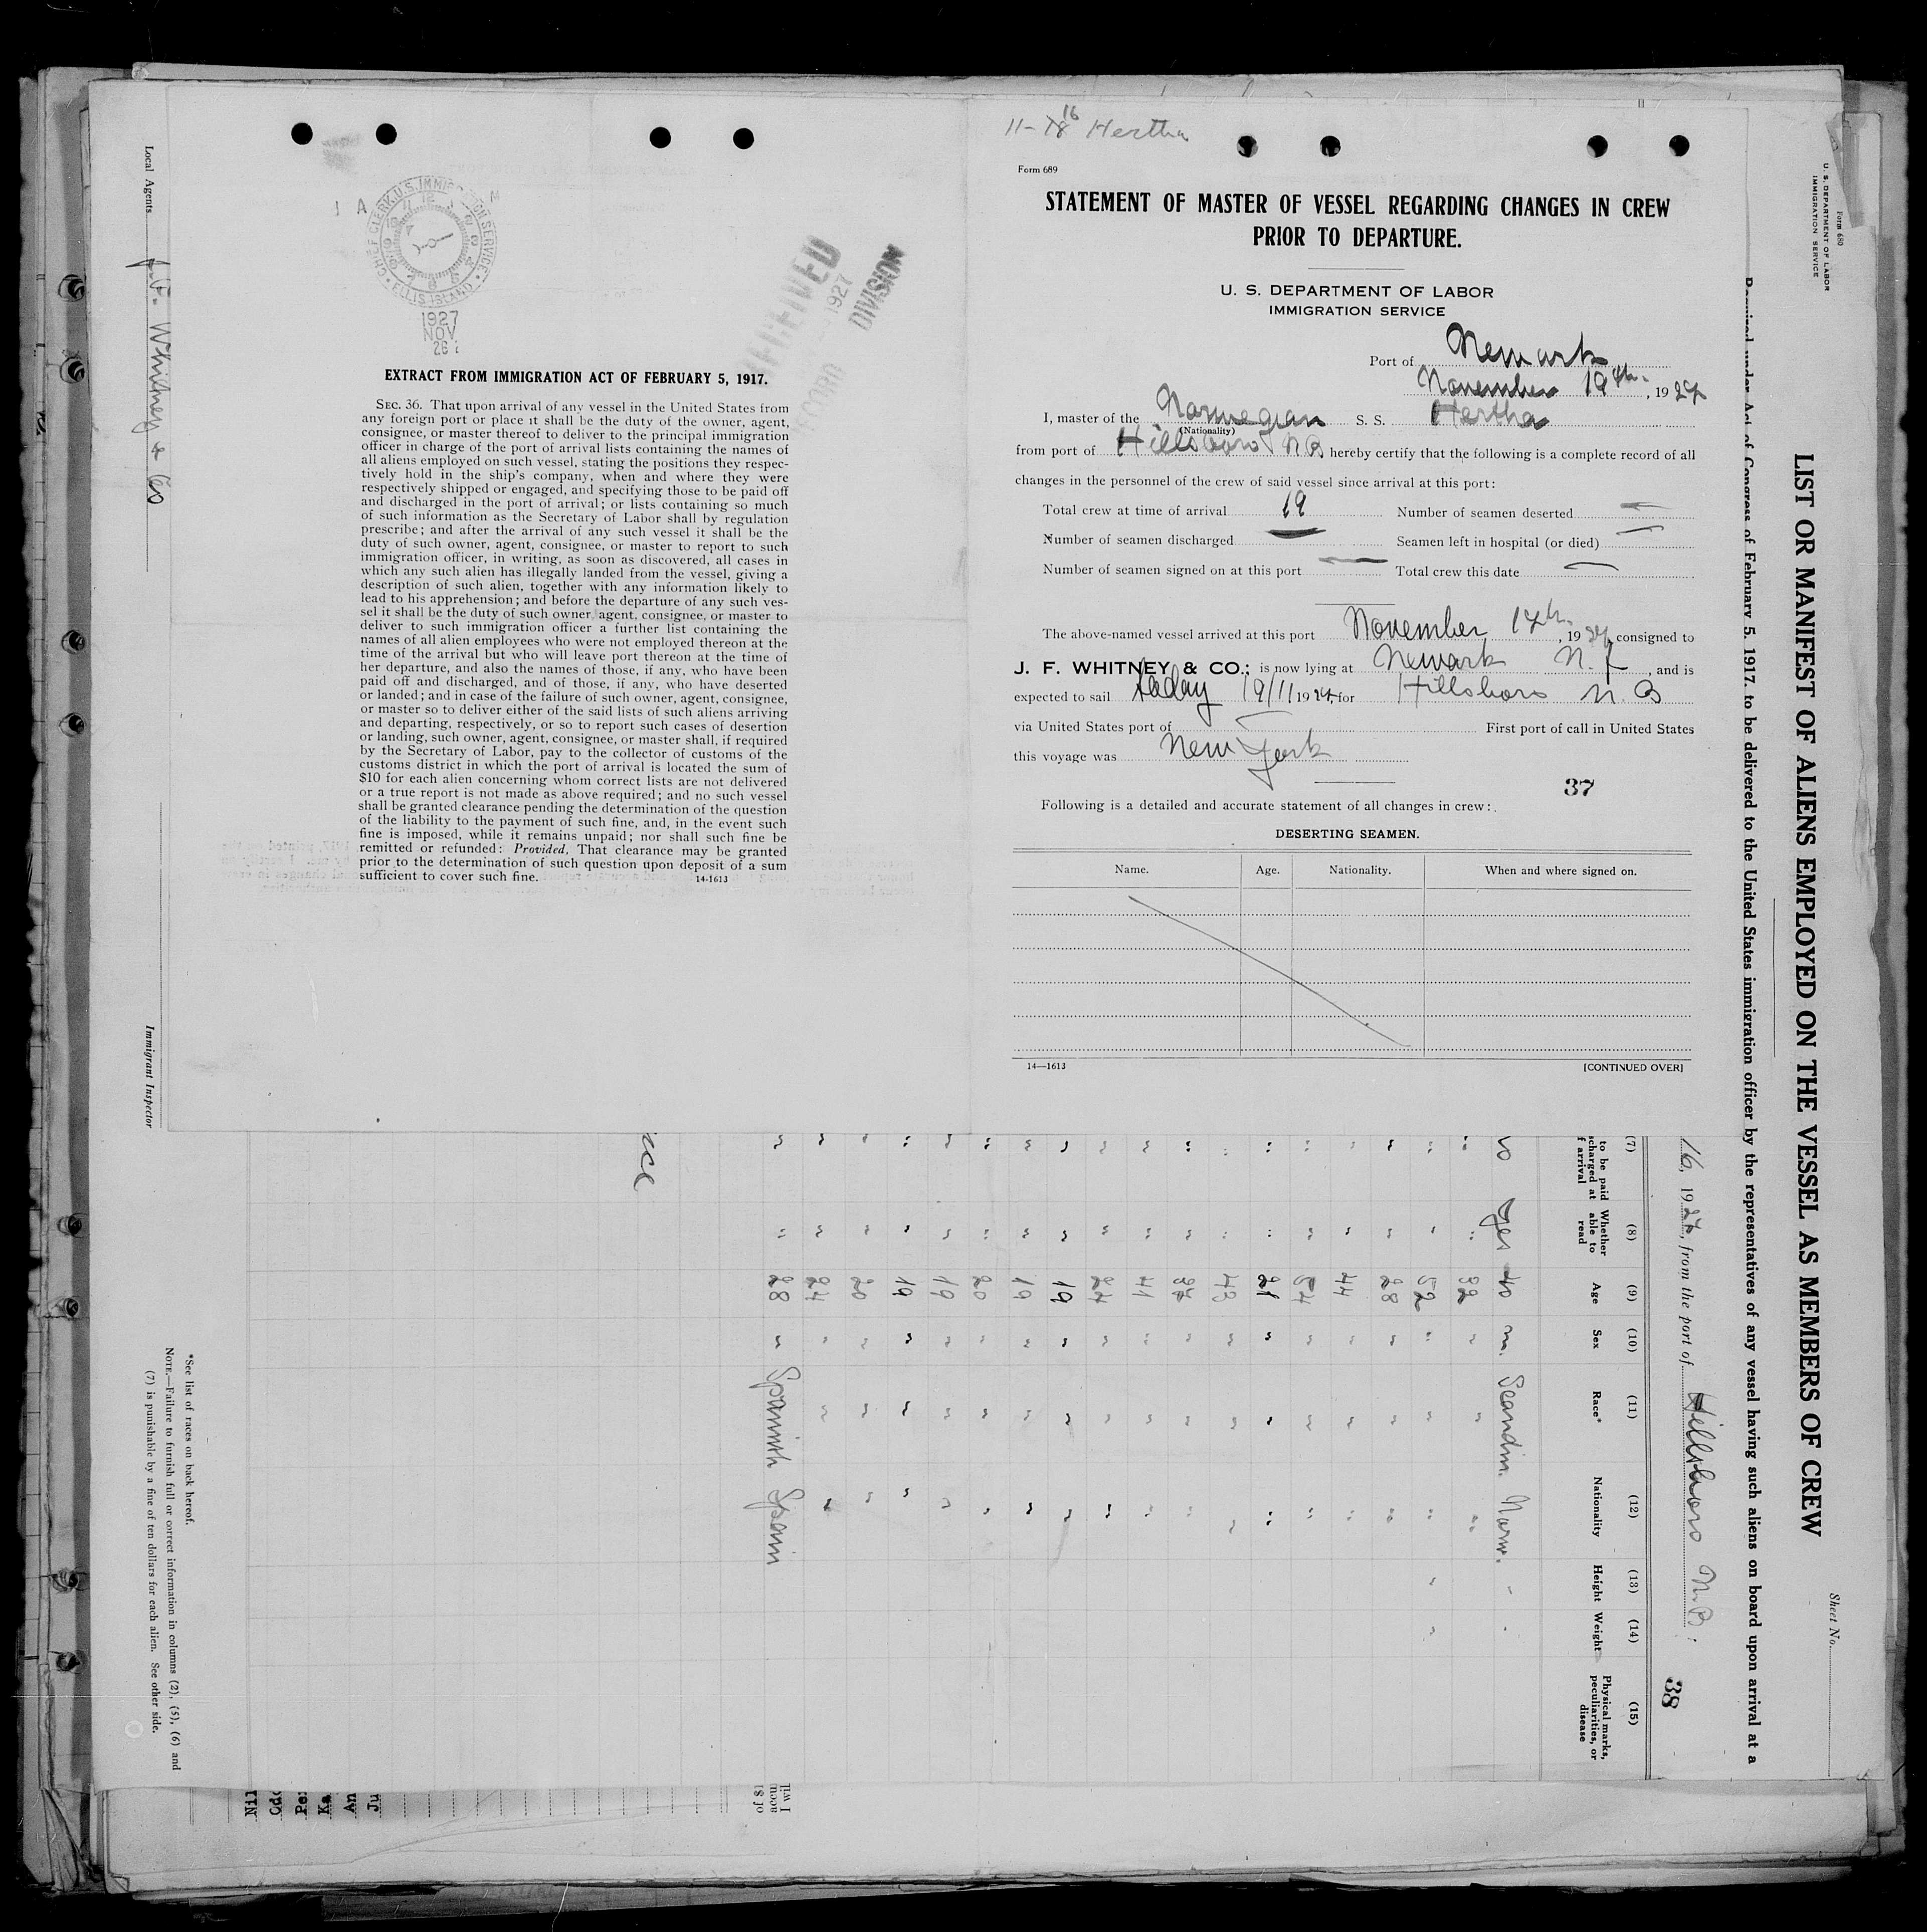 11-16 Hertha
Form 689
STATEMENT OF MASTER OF VESSEL REGARDING CHANGES IN CREW
PRIOR TO DEPARTURE.
U. S. DEPARTMENT OF LABOR
IMMIGRATION SERVICE
Port of Newark
November 19th, 1927
I, master of the Norwegian S. S. Hertha
(Nationality)
from port of Hillsboro N B hereby certify that the following is a complete record of all
changes in the personnel of the crew of said vessel since arrival at this port:
Total crew at time of arrival 19 Number of seamen deserted
Number of seamen discharged Seamen left in hospital (or died)
Number of seamen signed on at this port Total crew this date
The above-named vessel arrived at this port November 17th, 1927, consigned to
J. F. WHITNEY & CO.; is now lying at Newark N. J, and is
expected to sail today 19/11 1927, for Hillsboro N. B
via United States port of First port of call in United States
this voyage was New York
37
Following is a detailed and accurate statement of all changes in crew:
DESERTING SEAMEN.
Name. Age. Nationality. When and where signed on.
14—1613 [CONTINUED OVER]
CHIEF CLERK, U.S. IMMIGRATION SERVICE
ELLIS ISLAND
1927
NOV.
26
RECEIVED
1927
RECORD DIVISION
EXTRACT FROM IMMIGRATION ACT OF FEBRUARY 5, 1917.
SEC. 36. That upon arrival of any vessel in the United States from
any foreign port or place it shall be the duty of the owner, agent,
consignee, or master thereof to deliver to the principal immigration
officer in charge of the port of arrival lists containing the names of
all aliens employed on such vessel, stating the positions they respec-
tively hold in the ship's company, when and where they were
respectively shipped or engaged, and specifying those to be paid off
and discharged in the port of arrival; or lists containing so much
of such information as the Secretary of Labor shall by regulation
prescribe; and after the arrival of any such vessel it shall be the
duty of such owner, agent, consignee, or master to report to such
immigration officer, in writing, as soon as discovered, all cases in
which any such alien has illegally landed from the vessel, giving a
description of such alien, together with any information likely to
lead to his apprehension; and before the departure of any such ves-
sel it shall be the duty of such owner, agent, consignee, or master to
deliver to such immigration officer a further list containing the
names of all alien employees who were not employed thereon at the
time of the arrival but who will leave port thereon at the time of
her departure, and also the names of those, if any, who have been
paid off and discharged, and of those, if any, who have deserted
or landed; and in case of the failure of such owner, agent, consignee,
or master so to deliver either of the said lists of such aliens arriving
and departing, respectively, or so to report such cases of desertion
or landing, such owner, agent, consignee, or master shall, if required
by the Secretary of Labor, pay to the collector of customs of the
customs district in which the port of arrival is located the sum of
$10 for each alien concerning whom correct lists are not delivered
or a true report is not made as above required; and no such vessel
shall be granted clearance pending the determination of the question
of the liability to the payment of such fine, and, in the event such
fine is imposed, while it remains unpaid; nor shall such fine be
remitted or refunded: Provided, That clearance may be granted
prior to the determination of such question upon deposit of a sum
sufficient to cover such fine.
14-1613
Form 680
U. S. DEPARTMENT OF LABOR
IMMIGRATION SERVICE
LIST OR MANIFEST OF ALIENS EMPLOYED ON THE VESSEL AS MEMBERS OF CREW
Sheet No.
Required under Act of Congress of February 5, 1917, to be delivered to the United States immigration officer by the representatives of any vessel having such aliens on board upon arrival at a
16, 1927, from the port of Hillsboro N.B.
38
(7) (8) (9) (10) (11) (12) (13) (14) (15)
to be paid
Whether able to read
Age
Sex
Race*
Nationality
Height
Weight
Physical marks, peculiarities, or disease
Yes 40 m. Scandin. Norw.
" 32 " " "
" 52 " " "
" 28 " " "
" 44 " " "
" 54 " " "
" 21 " " "
" 43 " " "
" 41 " " "
" 19 " " "
" 19 " " "
" 20 " " "
" 19 " " "
" 19 " " "
" 20 " " "
" 28 " Spanish Spain
Local Agents J. F. Whitney & Co
Immigrant Inspector
*See list of races on back hereof.
NOTE.—Failure to furnish full or correct information in columns (2), (5), (6) and
(7) is punishable by a fine of ten dollars for each alien. See other side.